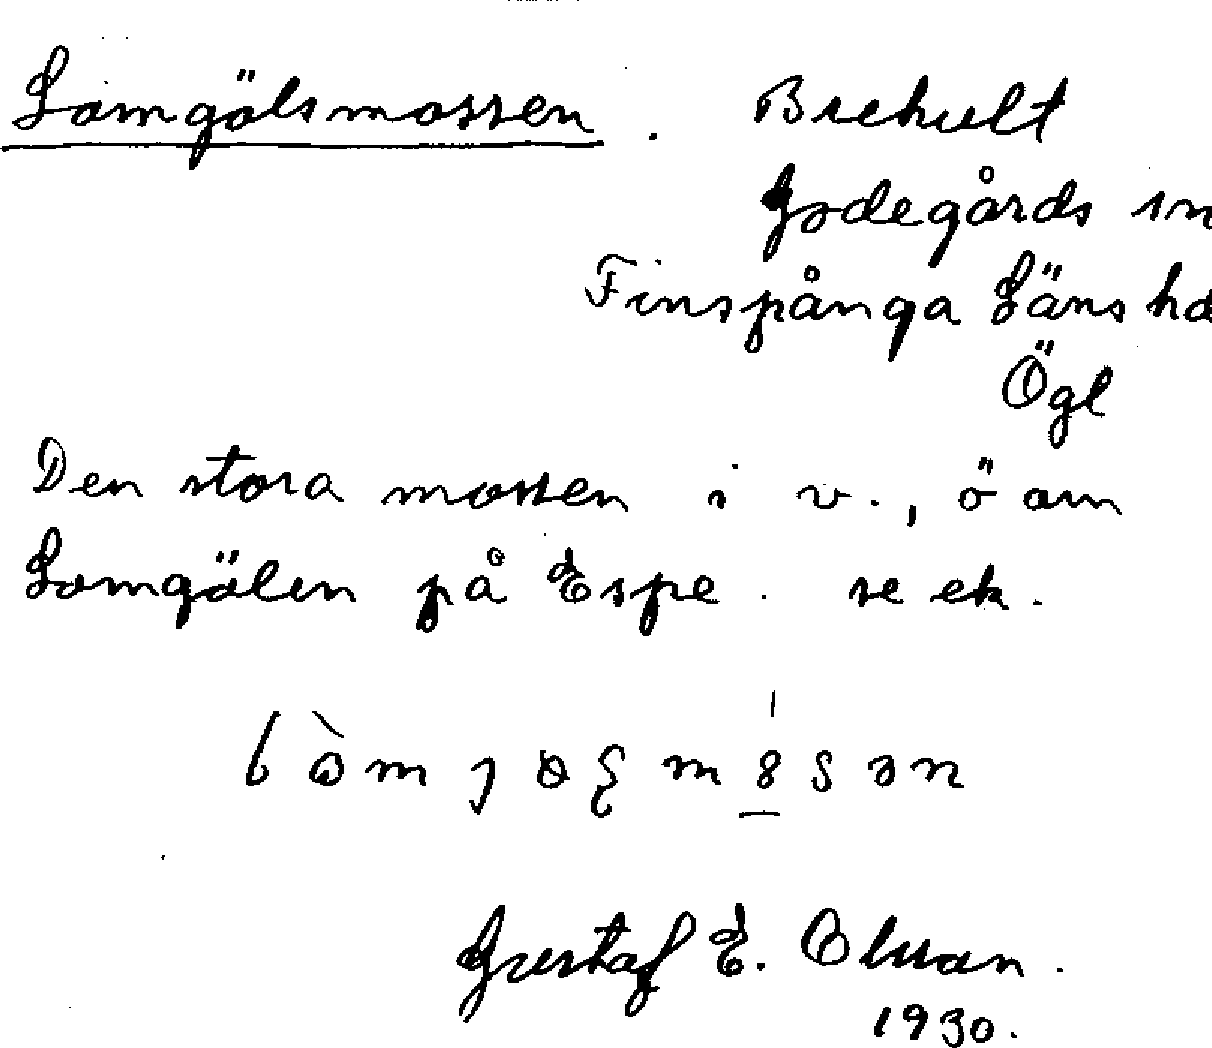 Lomgölsmossen. Brehult
Godegårds sn
Finspånga Läns hd
Ögl
Den stora mossen i v., ö om
Lomgölen på Espe. se ek.
Gustaf E. Olsson.
1930.